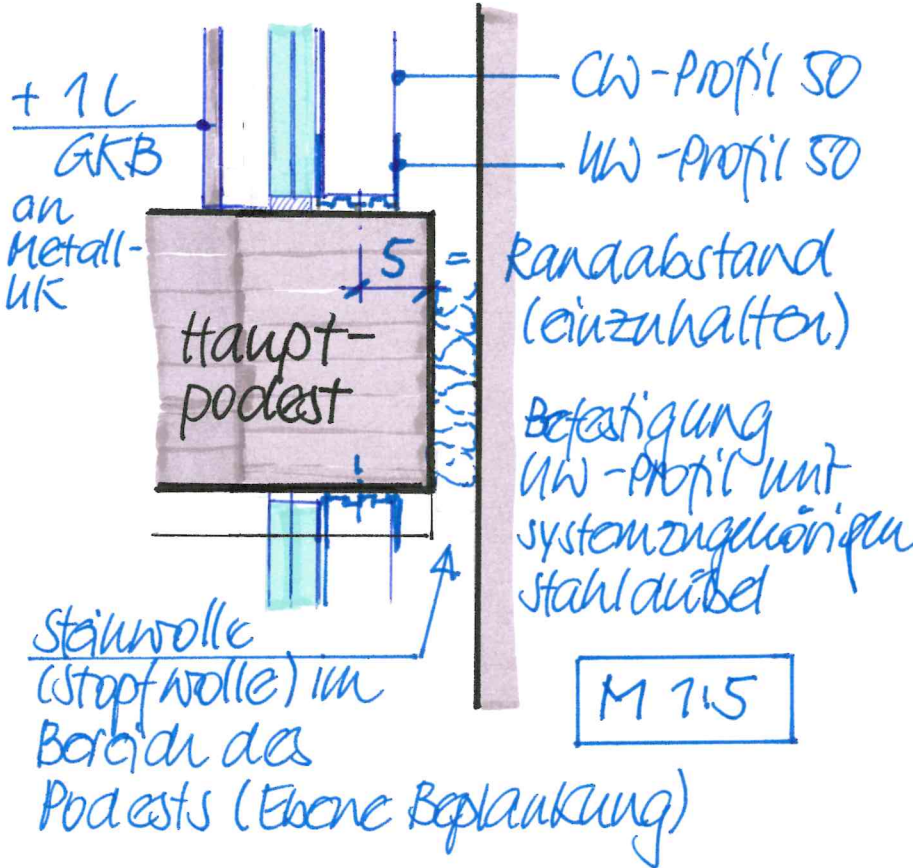 + 1 L
GKB
an
Metall-
UK
CW-Profil 50
UW-Profil 50
5 = Randabstand
(einzuhalten)
Haupt-
podest
Befestigung
UW-Profil mit
systemzugehörigen
Stahldübel
Steinwolle
(Stopfwolle) im
Bereich des
Podests (Ebene Beplankung)
M 1:5